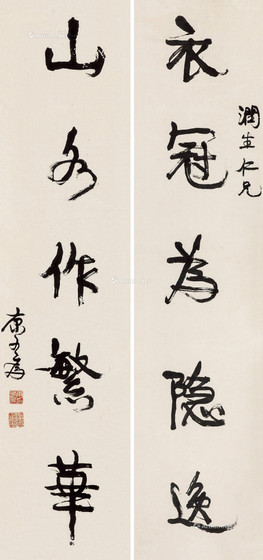 衣冠為隐逸
潤生仁兄
山水作繁華
康有為